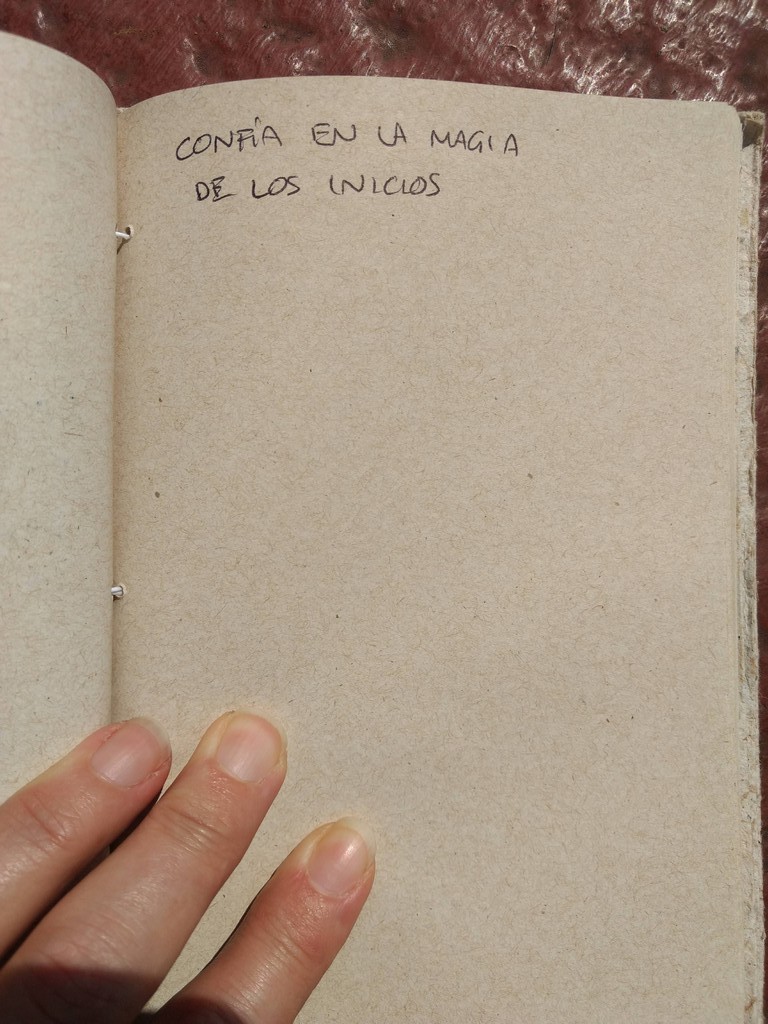 CONFÍA EN LA MAGIA
DE LOS INICIOS